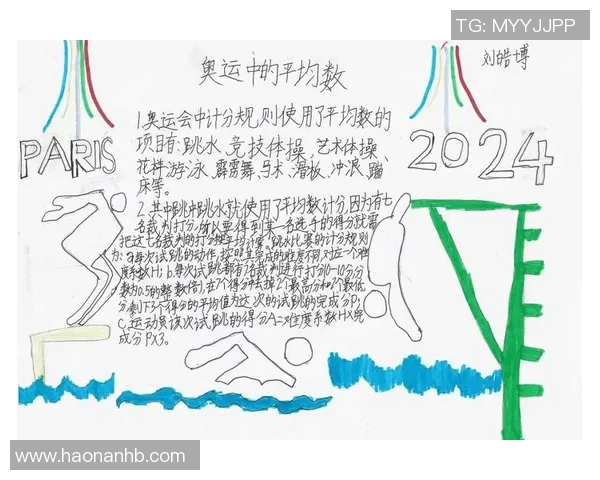 TG: MYYJJPP
刘皓博
奥运中的平均数
PARIS
2024
1.奥运会中计分规则使用了平均数的
项目有:跳水、竞技体操、艺术体操、
花样游泳、霹雳舞、马术、滑板、冲浪、蹦
床等。
2.其中跳水就使用了平均数计分,因为有七
名裁判打分,所以要得到某一名选手的得分就需
把这七名裁判的打分 平均计算。跳水比赛的计分规则
为:a每次试跳的动作, 完成的难度不同对应一个难
度系数H;b.每次试跳都有7名裁判进行打分(0-10分,分
数为0.5的整数倍),在7个得分中去掉2个最高分和2个最低
分,剩下3个得分的平均值为这次的试跳的完成分P;
C.运动员该次试跳的得分A=难度系数H×完
成分P×3。
www.haonanhb.com